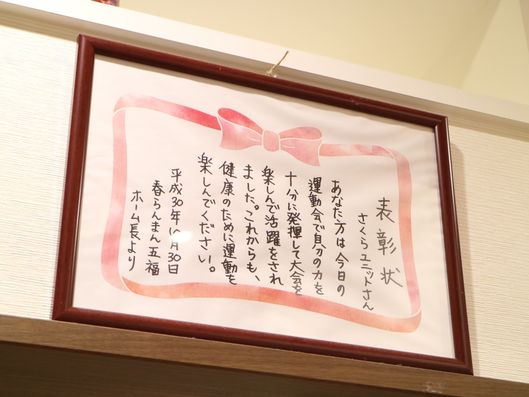 表彰状
さくらユニットさん
あなた方は今日の
運動会で自分の力を
十分に発揮して大会を
楽しんで活躍をされ
ました。これからも、
健康のために運動を
楽しんでください。
平成30年10月30日
春らんまん五福
ホーム長より